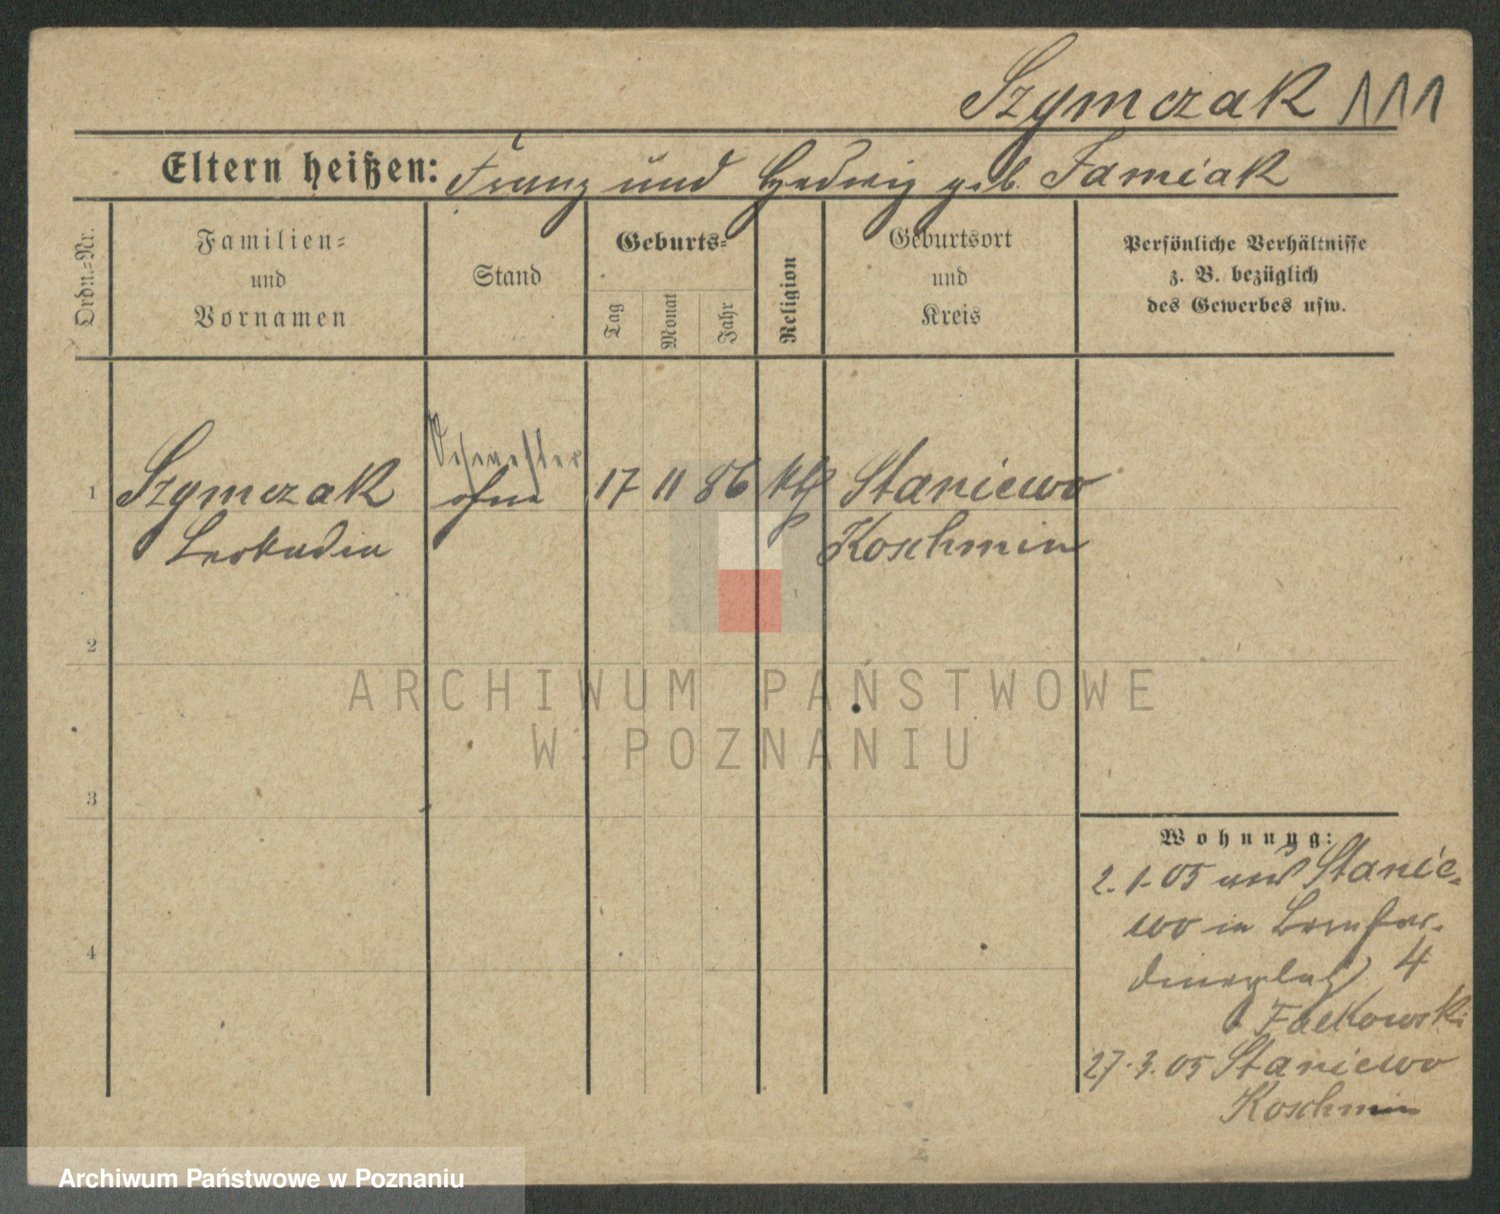 Szymczak 111
Eltern heißen: Franz und Hedwig geb. Jamiak
Ordn.-Nr.
Familien-
und
Vornamen
Stand
Geburts-
Tag
Monat
Jahr
Religion
Geburtsort
und
Kreis
Persönliche Verhältnisse
z. B. bezüglich
des Gewerbes usw.
1 Szymczak ohne 17 11 86 kth Staniewo
Leokadia Koschmin
2
ARCHIWUM PAŃSTWOWE
W POZNANIU
3
Wohnung:
2.1.05 aus Stanie-
wo in Bernhar-
4
dinerplatz 4
Falkowski
27.3.05 Staniewo
Koschmin
Archiwum Państwowe w Poznaniu